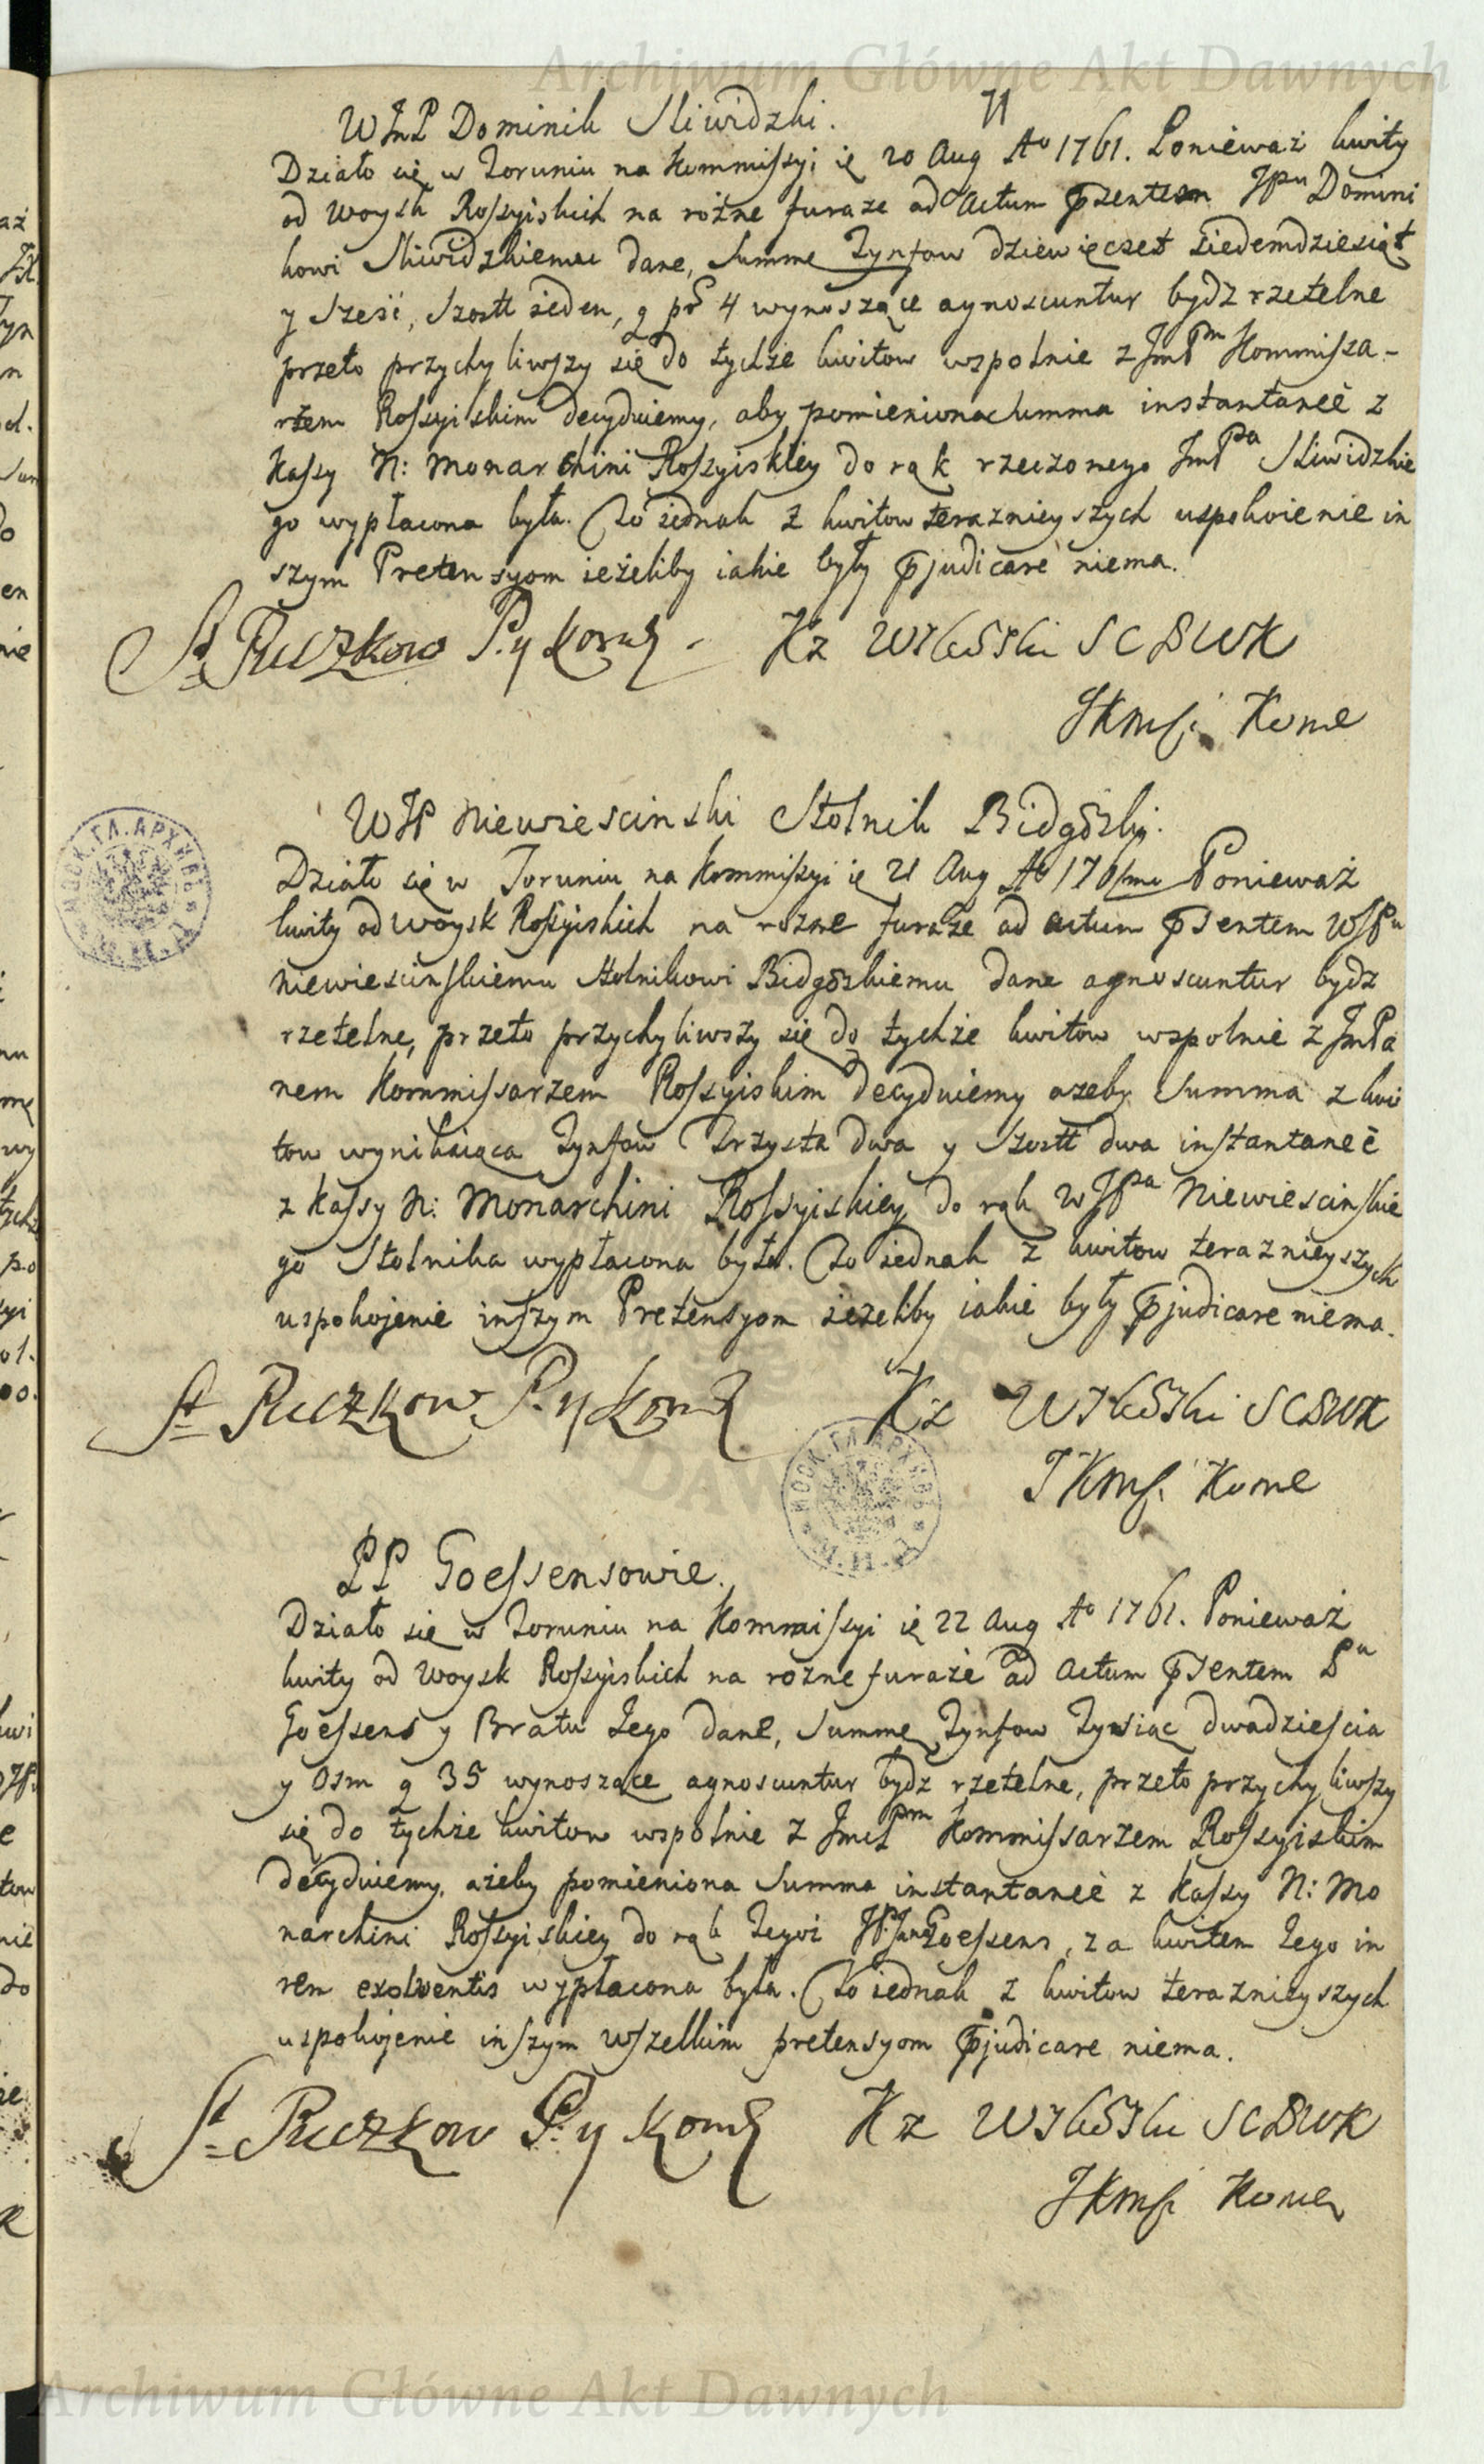 Archiwum Główne Akt Dawnych
71
WJmP Dominik Sliwidzki.
Działo się w Toruniu na Kommissyi ię 20 Aug Aº 1761. Ponieważ kwity
od Woysk Rossyiskich na rożne furaże ad Actum pntem JPu Domini
kowi Sliwidzkiemu dane, Summe Tynfow dziewięcset siedemdziesiąt
y sześć, szostt ieden, g pr 4 wynoszące agnoscuntur bydz rzetelne
przeto przychyliwszy się do tychże kwitow wspolnie z JmPm Kommissa-
rzem Rossyiskim decyduiemy, aby pomieniona summa instantaneè z
Kassy N: Monarchini Rossyiskiey do rąk rzeczonego JmPa Sliwidzkie
go wypłacona była. Co iednak z kwitow teraznieyszych uspokoienie in
szym Pretensyom ieżeliby iakie były pjudicare niema.
St Puczkow P. y Kom
Kz Wilski SCBWK
JKMsci Kome
WJP Niewiescinski Stolnik Bidgoski.
Działo się w Toruniu na Kommissyi ię 21 Aug Aº 1761mo Ponieważ
kwity od Woysk Rossyiskich na rożne furaże ad actum psentem WJPu
Niewiescinskiemu Stolnikowi Bidgoskiemu dane agnoscuntur bydz
rzetelne, przeto przychyliwszy się do tychże kwitow wspolnie z JmPa
nem Kommissarzem Rossyiskim decyduiemy ażeby Summa z kwi
tow wynikaiąca Tynfow Trzysta dwa y szostt dwa instantaneè
z Kassy N: Monarchini Rossyiskiey do rąk WJPa Niewiescinskie
go Stolnika wypłacona była. Co iednak z kwitow teraznieyszych
uspokojenie inszym Pretensyom ieżeliby iakie były pjudicare niema.
St Puczkow P. y Kom
Kz Wilski SCBWK
JKMsci Kome
PP Goessensowie.
Działo się w Toruniu na Kommissyi ię 22 Aug Aº 1761. Ponieważ
kwity od Woysk Rossyiskich na rożne furaże ad Actum psentem Pu
Goessens y Bratu Jego dane, Summę Tynfow Tysiąc dwadziescia
y Osm g 35 wynoszące agnoscuntur bydz rzetelne, przeto przychyliwszy
się do tychże kwitow wspolnie z JmcPm Kommissarzem Rossyiskim
decyduiemy, ażeby pomieniona Summa instantaneè z Kassy N: Mo
narchini Rossyiskiey do rąk Tegoż JP. Jana Goessens, za kwitem Jego in
rem exolventis wypłacona była. Co iednak z kwitow teraznieyszych
uspokojenie inszym wszelkim pretensyom pjudicare niema.
St Puczkow P. y Kom
Kz Wilski SCBWK
JKMsci Kome
Archiwum Główne Akt Dawnych